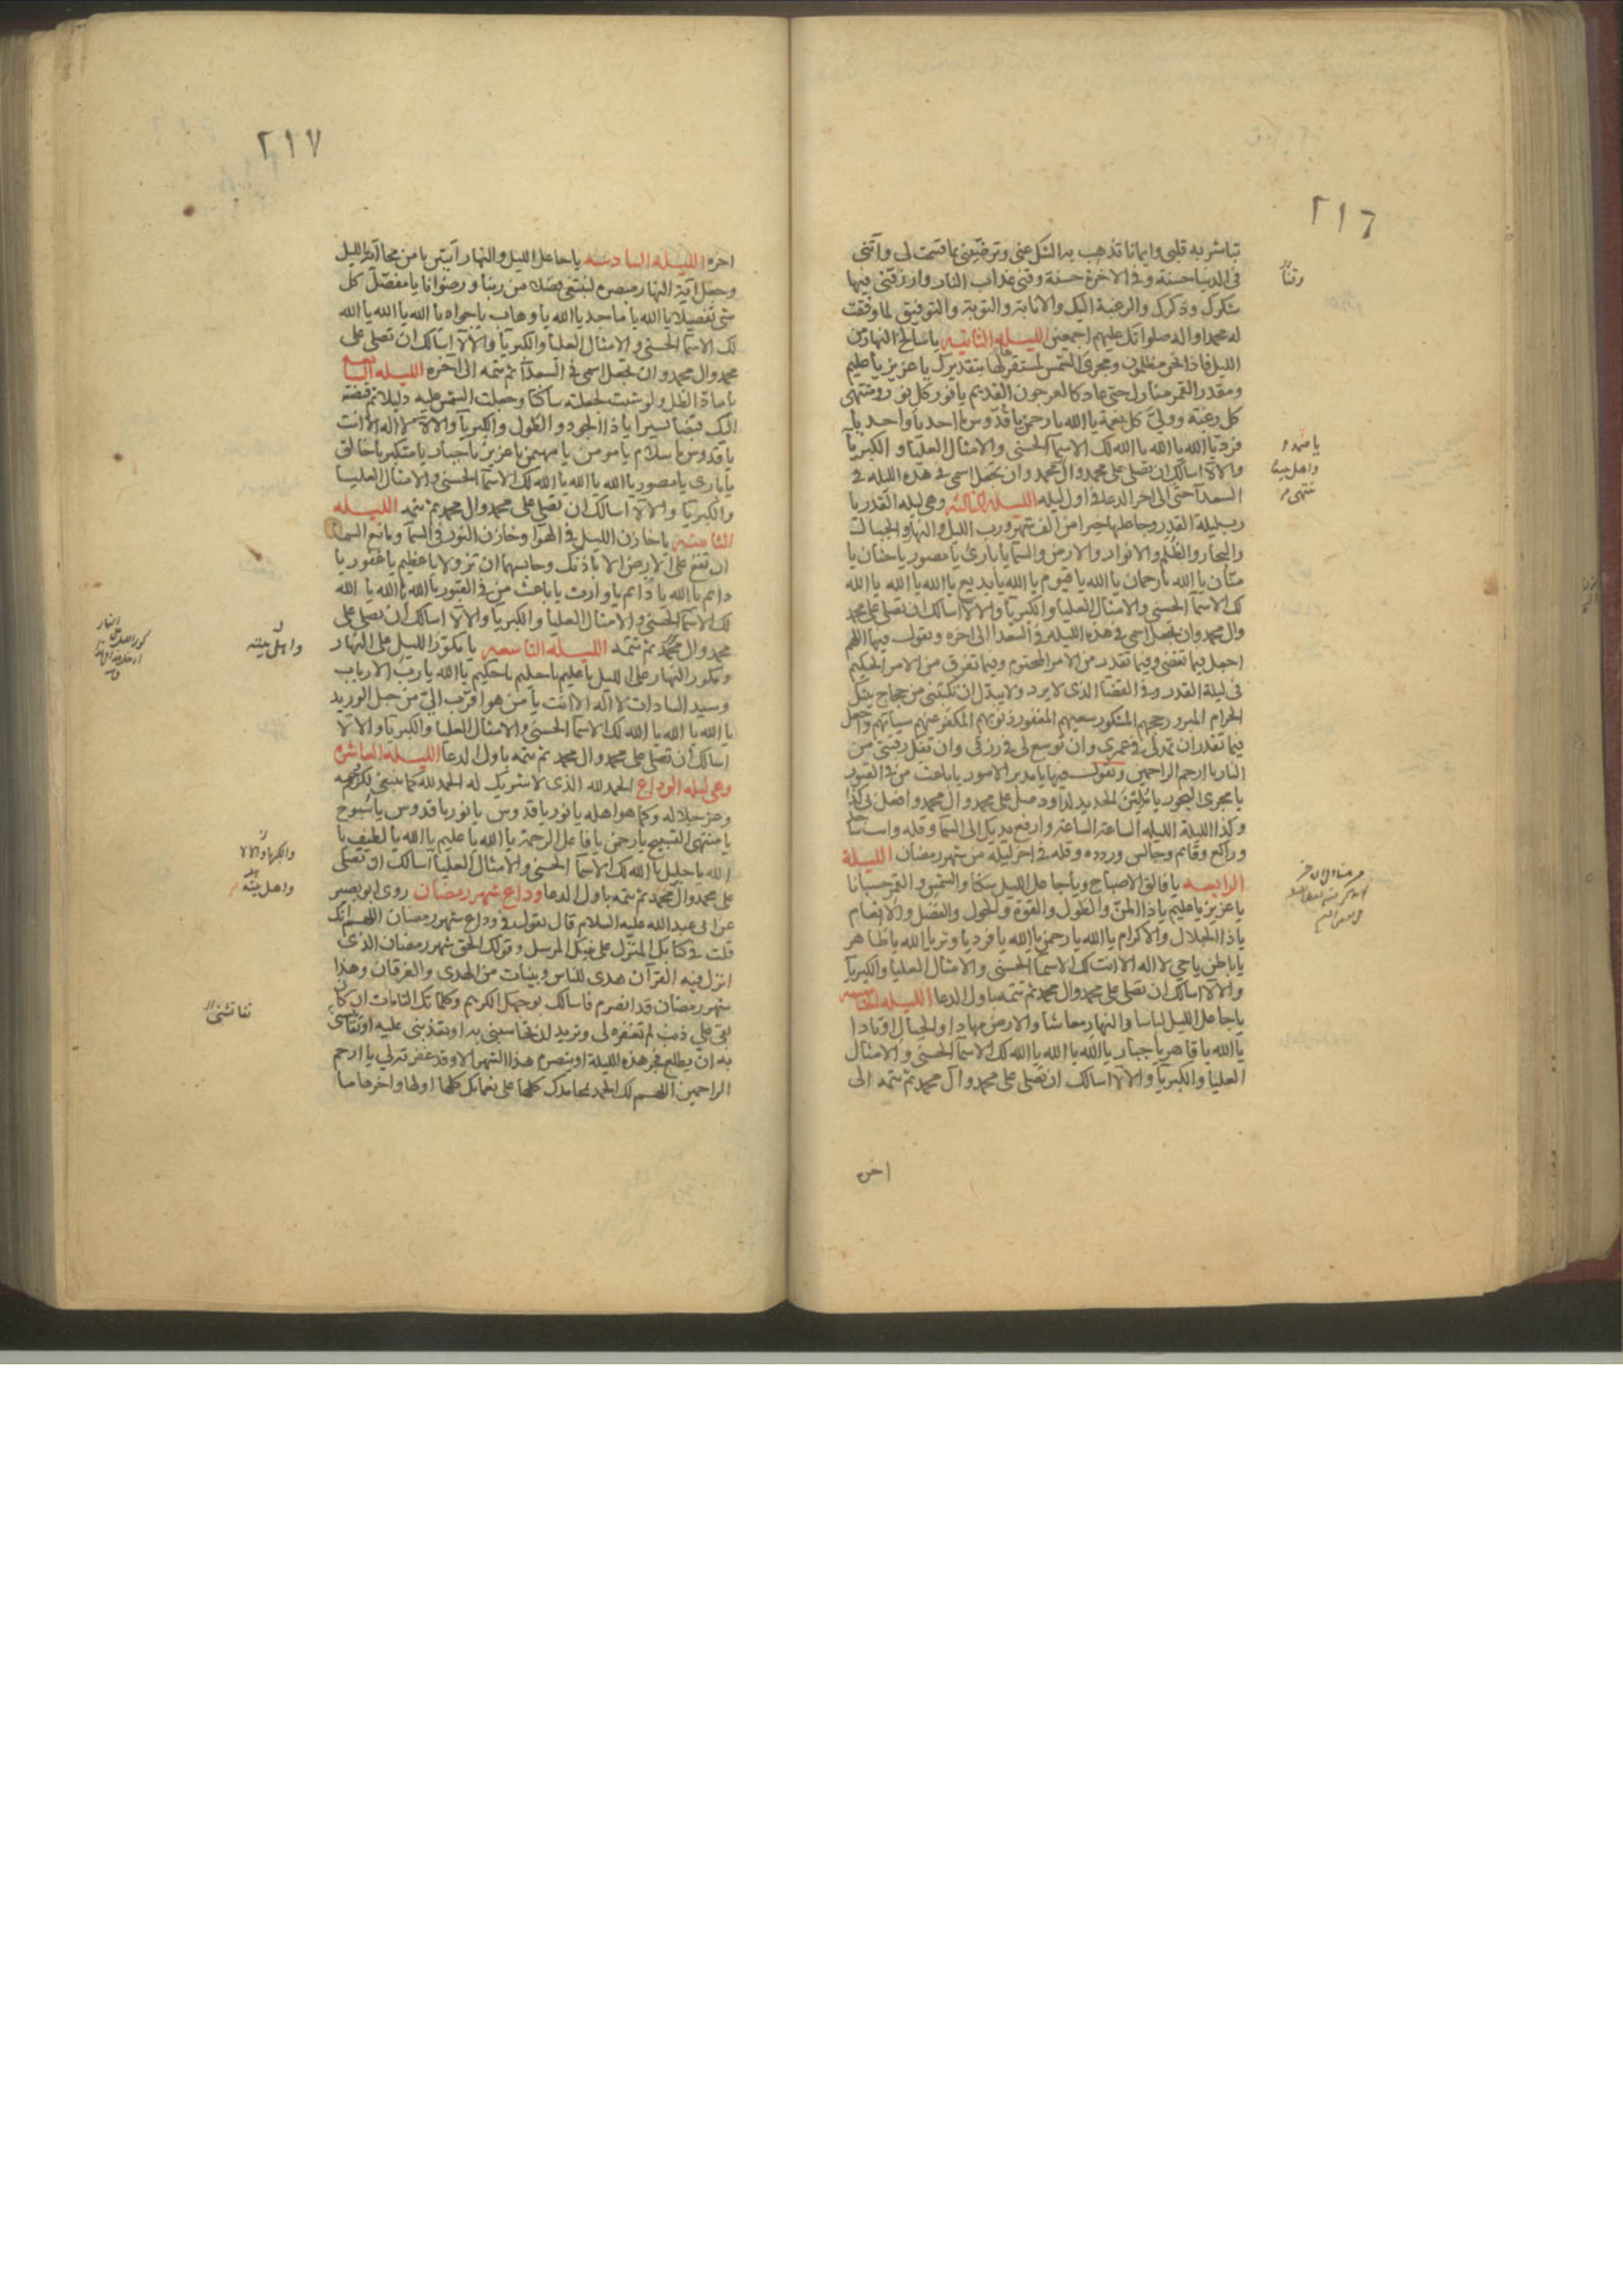 ٢١٦
تباشر به قلبي وايمانا تذهب به الشك عني وترضيني بما قسمت لي وآتني
في الدنيا حسنة وفي الاخرة حسنة وقني عذاب النار وارزقني فيها
شكرك وذكرك والرغبة اليك والانابة والتوبة والتوفيق لما وفقت
له محمدا واله صلواتك عليهم اجمعين الليلة الثانية يا سالخ النهار من
الليل فاذا نحن مظلمون ومجري الشمس لمستقر لها بتقديرك يا عزيز يا عليم
ومقدر القمر منازل حتى عاد كالعرجون القديم يا نور كل نور ومنتهى
كل رغبة وولي كل نعمة يا الله يا رحمن يا قدوس يا احد يا واحد يا
فرد يا الله يا الله يا الله لك الاسما الحسنى والامثال العليا والكبريا
والالا اسالك ان تصلي على محمد وال محمد وان تجعل اسمي في هذه الليلة في
السعدا حتى الى اخر الدعا في اول ليله الليلة الثالثة وهي ليلة القدر يا
رب ليلة القدر وجاعلها خيرا من الف شهر ورب الليل والنهار والجبال
والبحار والظلم والانوار والارض والسما يا بارئ يا مصور يا حنان يا
منان يا الله يا رحمان يا الله يا قيوم يا الله يا بديع يا الله يا الله يا الله
لك الاسما الحسنى والامثال العليا والكبريا والالا اسالك ان تصلي على محمد
وال محمد وان تجعل اسمي في هذه الليلة في السعدا الى اخره ويقول فيها اللهم
اجعل فيما تقضي وفيما تقدر من الامر المحتوم وفيما تفرق من الامر الحكيم
في ليلة القدر وفي القضا الذي لا يرد ولا يبدل ان تكتبني من حجاج بيتك
الحرام المبرور حجهم المشكور سعيهم المغفور ذنوبهم المكفر عنهم سياتهم واجعل
فيما تقدر ان تمد لي في عمري وان توسع لي في رزقي وان تفك رقبتي من
النار يا ارحم الراحمين وتقول فيها يا مدبر الامور يا باعث من في القبور
يا مجري البحور يا ملين الحديد لداود صل على محمد وال محمد وافعل بي كذا
وكذا الليلة الليلة الساعة الساعة وارفع يديك الى السما وقله وانت ساجد
وراكع وقائم وجالس وردده وقله في اخر ليلة من شهر رمضان الليلة
الرابعة يا فالق الاصباح ويا جاعل الليل سكنا والشمس والقمر حسبانا
يا عزيز يا عليم يا ذا المن والطول والقوة والحول والفضل والانعام
يا ذا الجلال والاكرام يا الله يا رحمن يا الله يا فرد يا وتر يا الله يا ظاهر
يا باطن يا حي لا اله الا انت لك الاسما الحسنى والامثال العليا والكبريا
والالا اسالك ان تصلي على محمد وال محمد ثم تتمه باول الدعا الليلة الخامسة
يا جاعل الليل لباسا والنهار معاشا والارض مهادا والجبال اوتادا
يا الله يا قاهر يا جبار يا الله يا الله يا الله لك الاسما الحسنى والامثال
العليا والكبريا والالا اسالك ان تصلي على محمد وال محمد ثم تتمه الى
اخره
وقنا
يا صمد
واهل بيته
٢١٧
اخره الليلة السادسة يا جاعل الليل والنهار آيتين يا من محا آية الليل
وجعل آية النهار مبصرة لنبتغي فضلا من ربنا ورضوانا يا مفصل كل
شي تفصيلا يا الله يا ماجد يا الله يا وهاب يا جواد يا الله يا الله يا الله
لك الاسما الحسنى والامثال العليا والكبريا والالا اسالك ان تصلي على
محمد وال محمد وان تجعل اسمي في السعدا ثم تتمه الى اخره الليلة السابعة
يا ماد الظل ولو شئت لجعلته ساكنا وجعلت الشمس عليه دليلا ثم قبضته
اليك قبضا يسيرا يا ذا الجود والطول والكبريا والالا لا اله الا انت
يا قدوس يا سلام يا مومن يا مهيمن يا عزيز يا جبار يا متكبر يا خالق
يا باري يا مصور يا الله يا الله يا الله لك الاسما الحسنى والامثال العليا
والكبريا والالا اسالك ان تصلي على محمد وال محمد ثم تتمه الليلة
الثامنة يا خازن الليل في الهوا وخازن النور في السما ومانع السما
ان تقع على الارض الا باذنك وحابسهما ان تزولا يا عظيم يا غفور يا
دايم يا الله يا دايم يا وارث يا باعث من في القبور يا الله يا الله يا الله
لك الاسما الحسنى والامثال العليا والكبريا والالا اسالك ان تصلي على
محمد وال محمد ثم تتمه الليلة التاسعة يا مكور الليل على النهار
ومكور النهار على الليل يا عليم يا حليم يا حكيم يا الله يا رب الارباب
وسيد السادات لا اله الا انت يا من هو اقرب الي من حبل الوريد
يا الله يا الله يا الله لك الاسما الحسنى والامثال العليا والكبريا والالا
اسالك ان تصلي على محمد وال محمد ثم تتمه باول الدعا الليلة العاشرة
وهي ليلة الوداع الحمد لله الذي لا شريك له الحمد لله كما ينبغي لكرم وجهه
وعز جلاله وكما هو اهله يا نور يا قدوس يا نور يا قدوس يا سبوح
يا منتهى التسبيح يا رحمن يا فاعل الرحمة يا الله يا عليم يا الله يا لطيف يا
الله يا جليل يا الله لك الاسما الحسنى والامثال العليا اسالك ان تصلي
على محمد وال محمد ثم تتمه باول الدعا وداع شهر رمضان روى ابو بصير
عن ابي عبد الله عليه السلام قال يقول في وداع شهر رمضان اللهم انك
قلت في كتابك المنزل على نبيك المرسل وقولك الحق شهر رمضان الذي
انزل فيه القرآن هدى للناس وبينات من الهدى والفرقان وهذا
شهر رمضان قد انصرم فاسالك بوجهك الكريم وكلماتك التامات ان كان
بقي علي ذنب لم تغفره لي وتريد ان تحاسبني به او تعذبني عليه او تقايسني
به ان يطلع فجر هذه الليلة او ينصرم هذا الشهر الا وقد غفرته لي يا ارحم
الراحمين اللهم لك الحمد بمحامدك كلها على نعمائك كلها اولها واخرها ما
واهل بيته
والكبريا والالا
واهل بيته